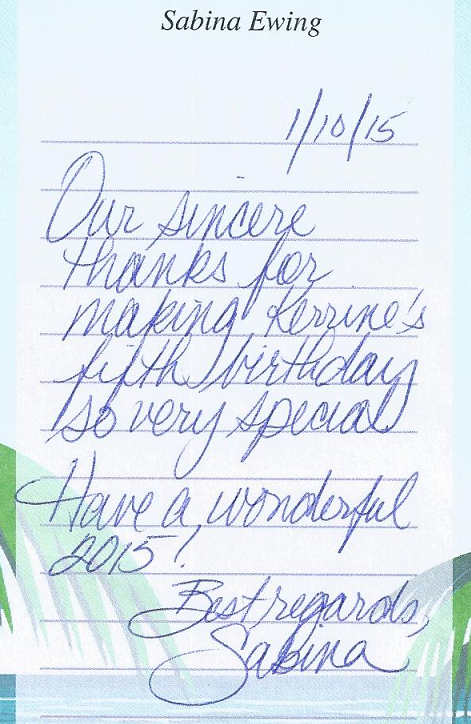 Sabina Ewing
1/10/15
Our sincere
thanks for
making Kerrine's
fifth birthday
so very special
Have a wonderful
2015!
Best regards,
Sabina